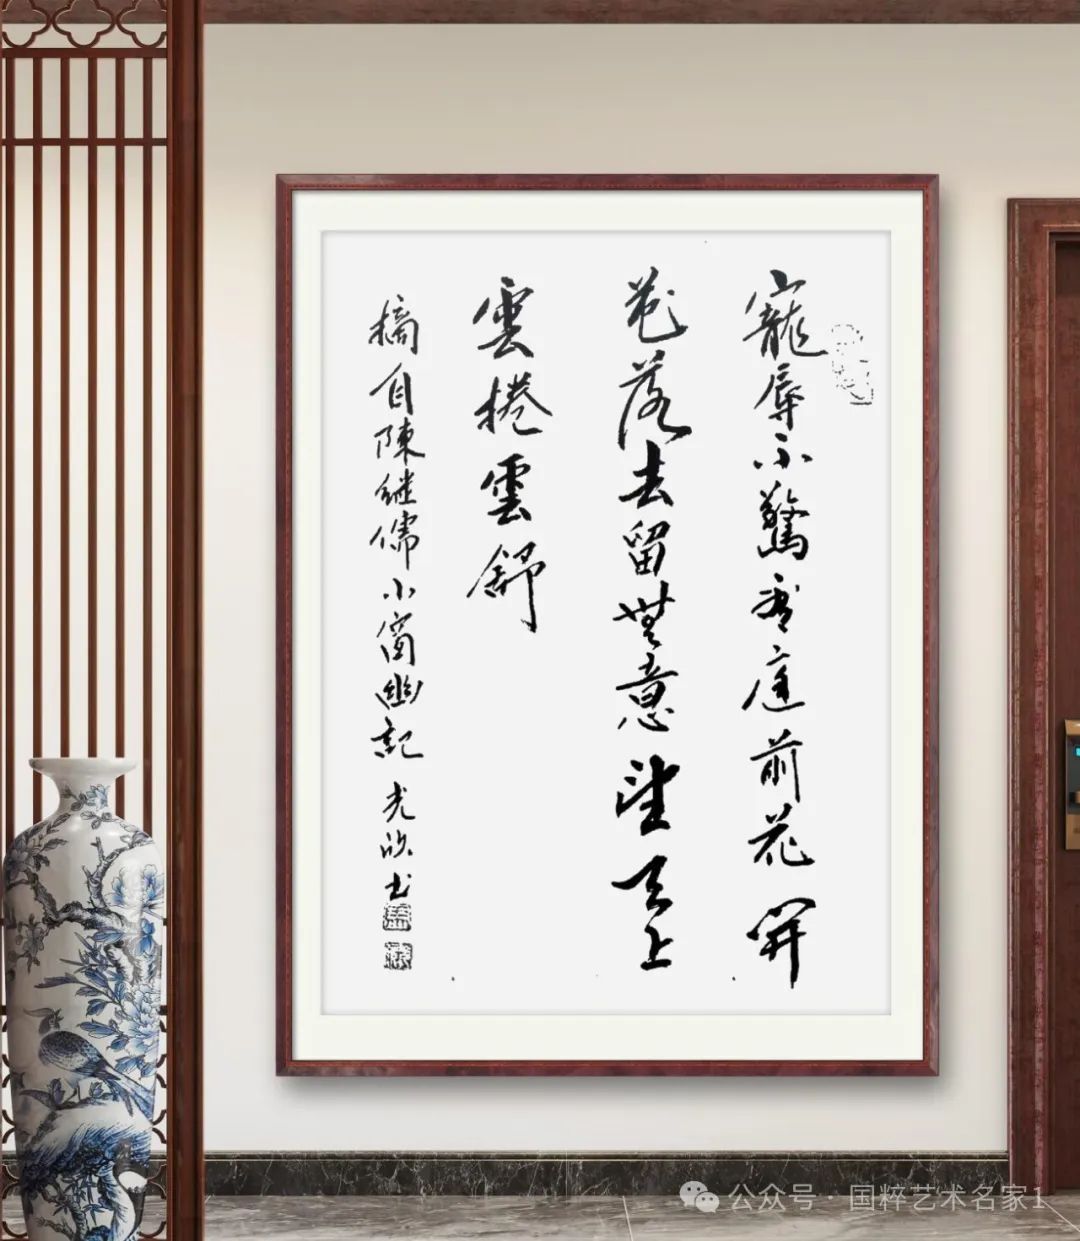 寵辱不驚看庭前花開
花落去留無意望天上
雲捲雲舒
摘自陳继儒小窗幽記 光欣书
公众号 · 国粹艺术名家1